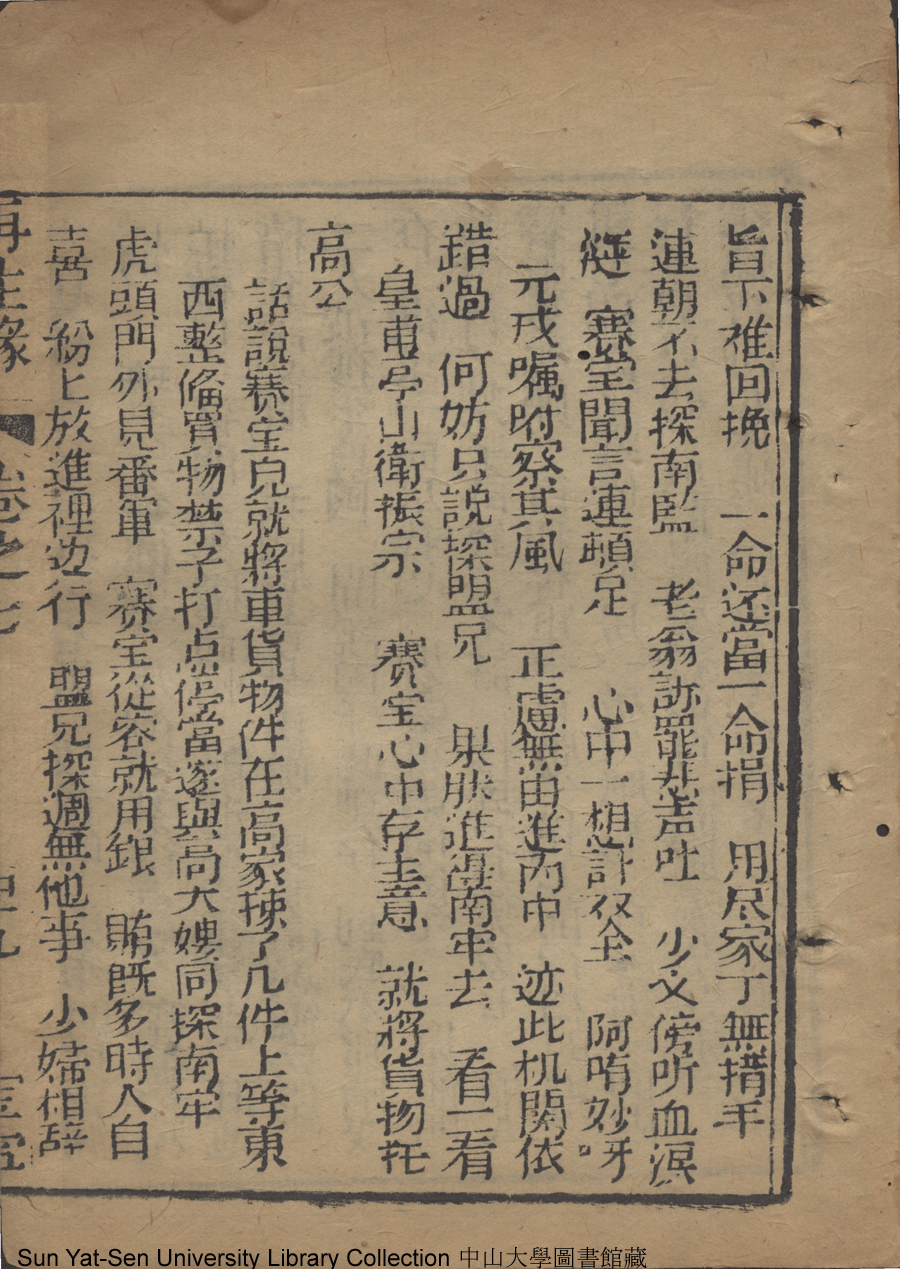 旨下难回挽　一命还當一命捐　用尽家丁無措手
連朝不去探南監　老翁訴罷悲声吐　少文傍听血淚
涟　赛宝聞言連頓足　心中一想計双全　阿唷妙呀
元戎嘱咐察其風　正慮無由進內中　迹此机関依
錯過　何妨只説探盟兄　果肰進得南牢去　看一看
皇甫亭山衛振宗　赛宝心中存主意　就將貨物托
高公
話說赛宝兒就將車貨物件在高家揀了几件上等東
西整俻買物禁子打点停當遂與高大嫂同探南牢
虎頭門外見番軍　赛宝從容就用銀　賄既多時人自
喜　紛上放進裡边行　盟兄探週無他事　少婦相辞
再生緣　卷之七
Sun Yat-Sen University Library Collection 中山大學圖書館藏